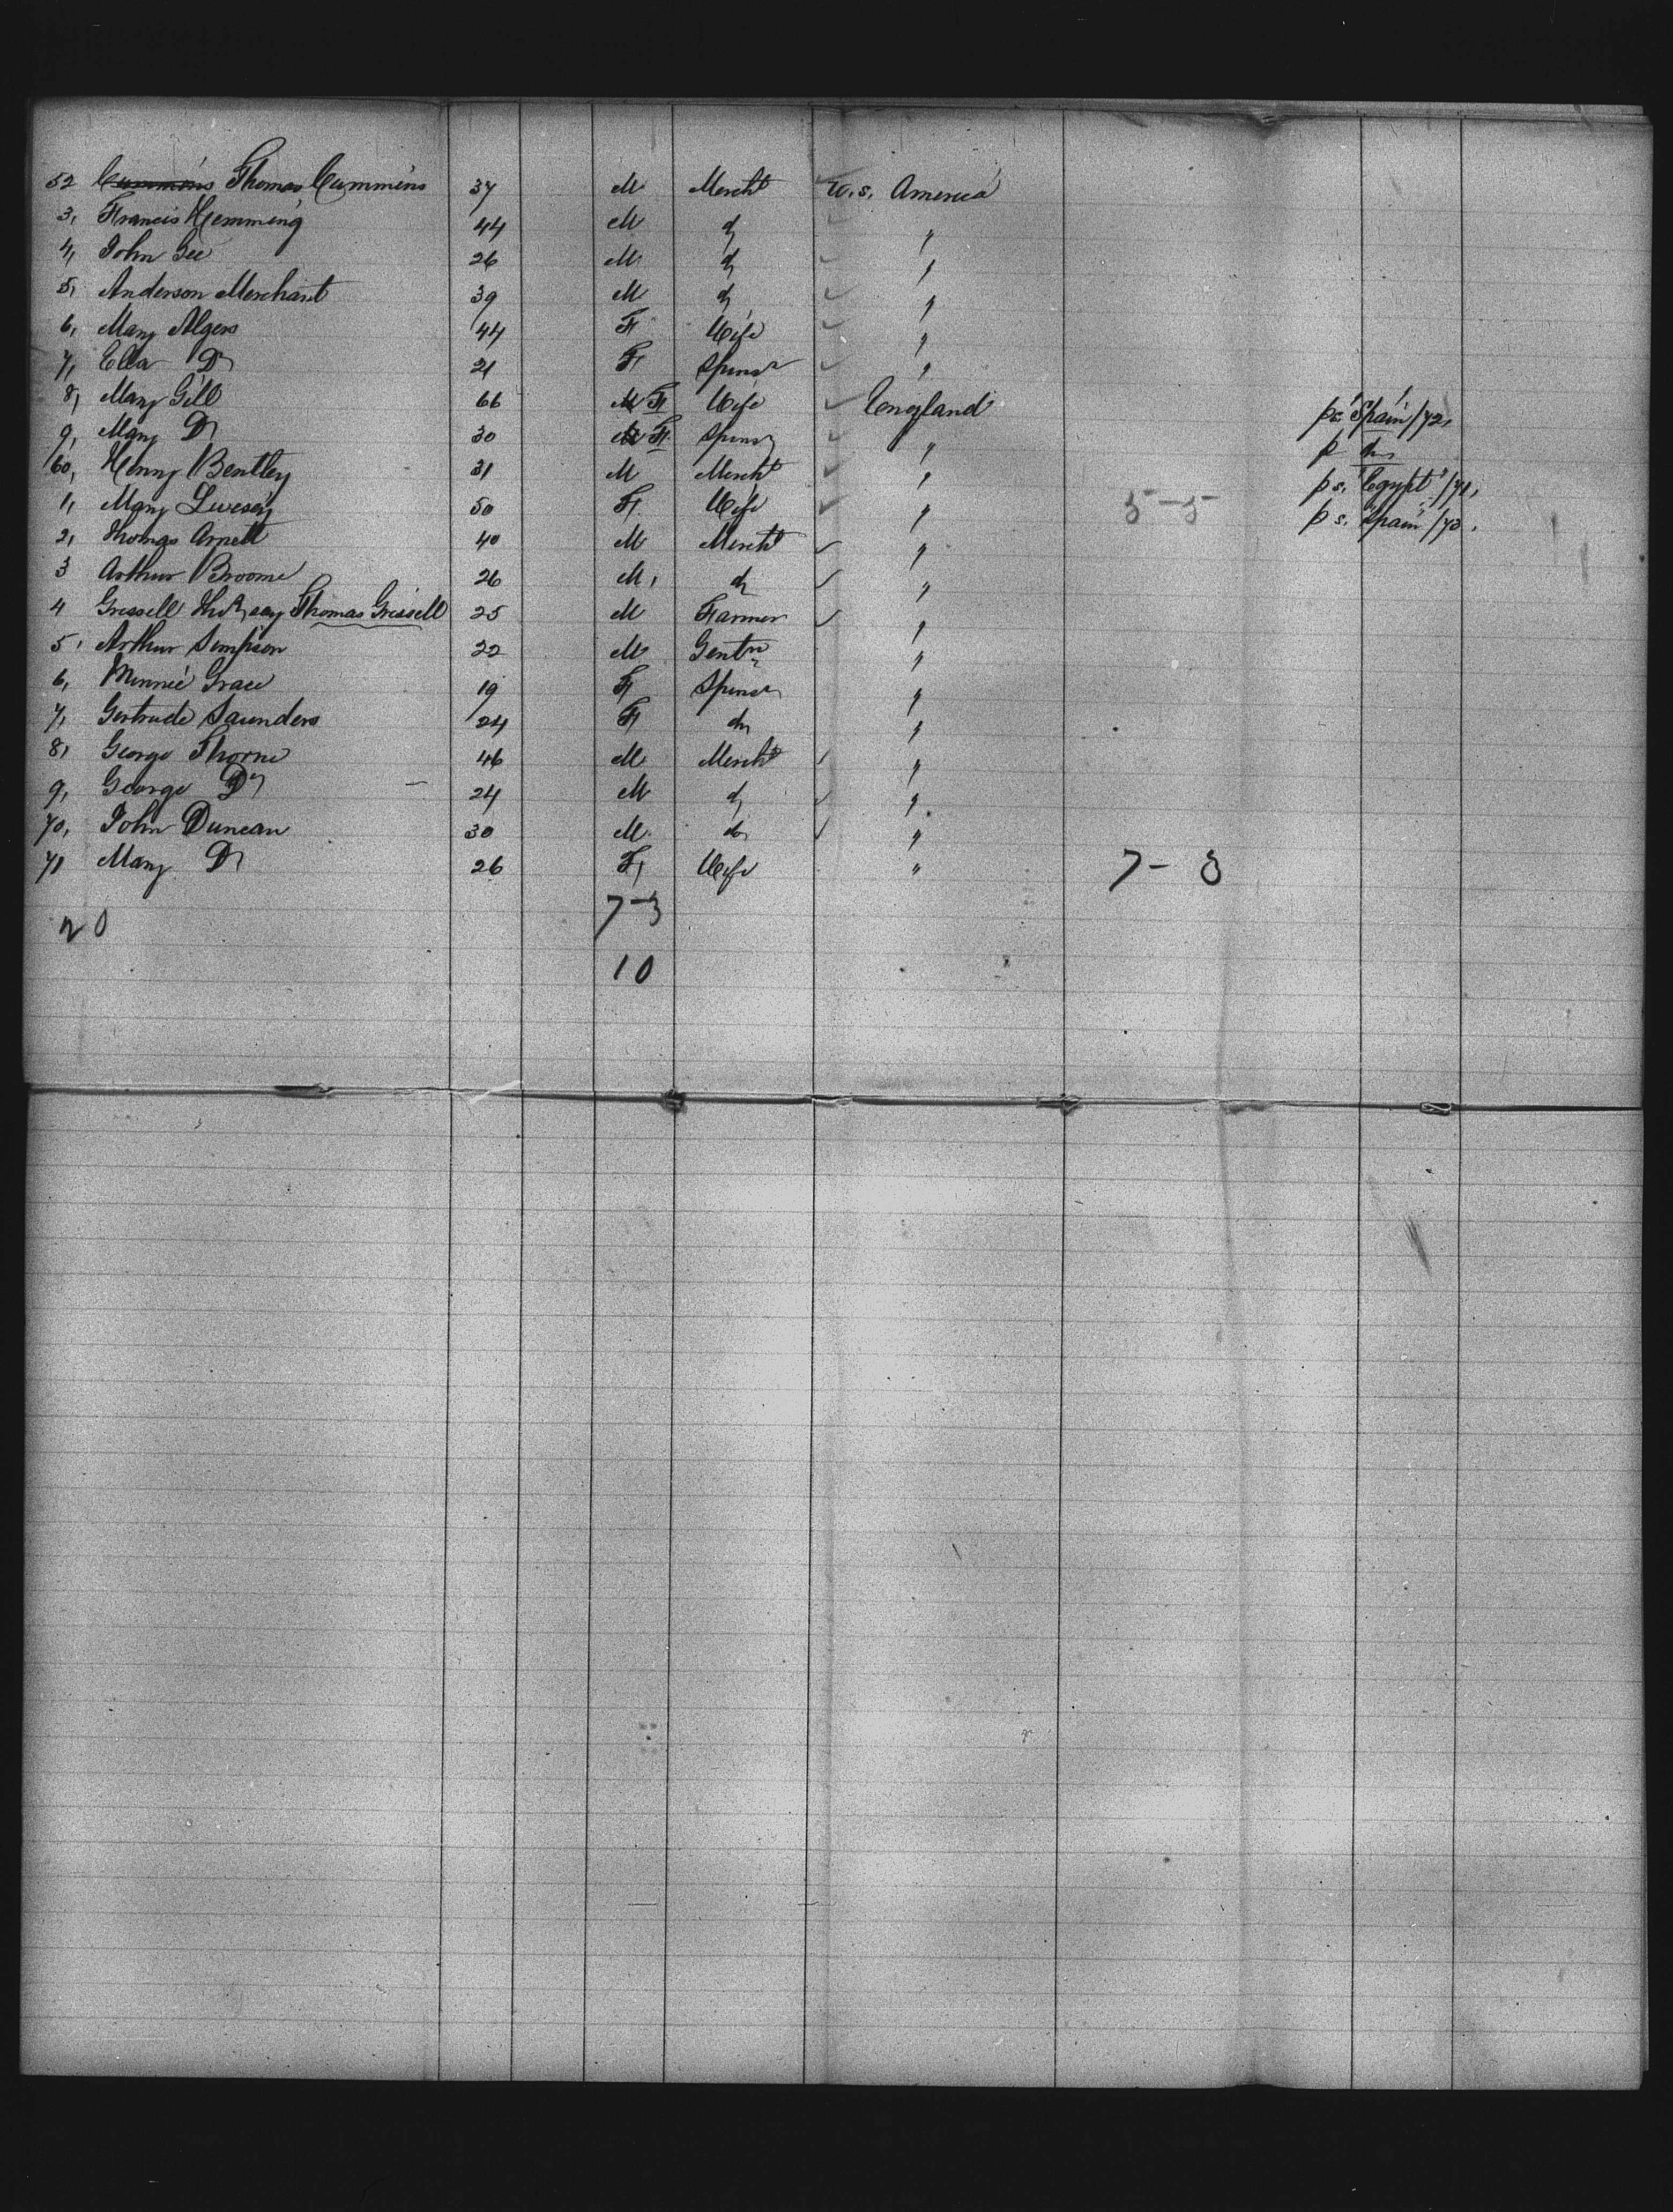 52 Cummins Thomas Cummins 37 M Mercht U.S. America
3, Francis Hemming 44 M do "
4, John Gee 26 M do "
5, Anderson Merchant 39 M do "
6, Mary Algers 44 F Wife "
7, Ella Do 21 F Spinsr "
8, Mary Gill 66 M F Wife England p s. "Spain" /72,
9, Mary Do 30 M F Spinsr " p do
60, Henry Bentley 31 M Mercht " p s. "Egypt" /71,
1, Mary Livesey 50 F Wife " 5-5 p s. "Spain" /73.
2, Thomas Arnett 40 M Mercht "
3 Arthur Broome 26 M, do "
4 Grissell Thos say Thomas Grissell 25 M Farmer "
5, Arthur Simpson 22 M Gentn "
6, Minnie Grace 19 F Spinsr "
7, Gertrude Saunders 24 F do "
8, George Thorne 46 M Mercht "
9, George Do 24 M do "
70, John Duncan 30 M do "
71 Mary Do 26 F Wife " 7-3
20 7-3
10